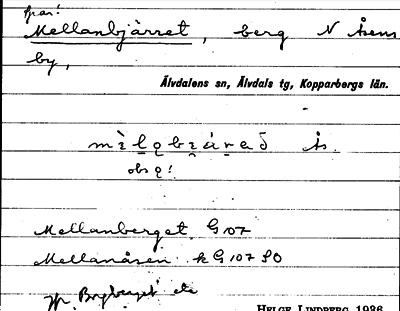 spar!
Mellanbjärret, berg N Åsens
by,
Älvdalens sn, Älvdals tg, Kopparbergs län.
Ås
obs ǫ!
Mellanberget G 107
Mellanåsen k G 107 SO
jfr Byberget etc
HELGE LINDBERG 1936